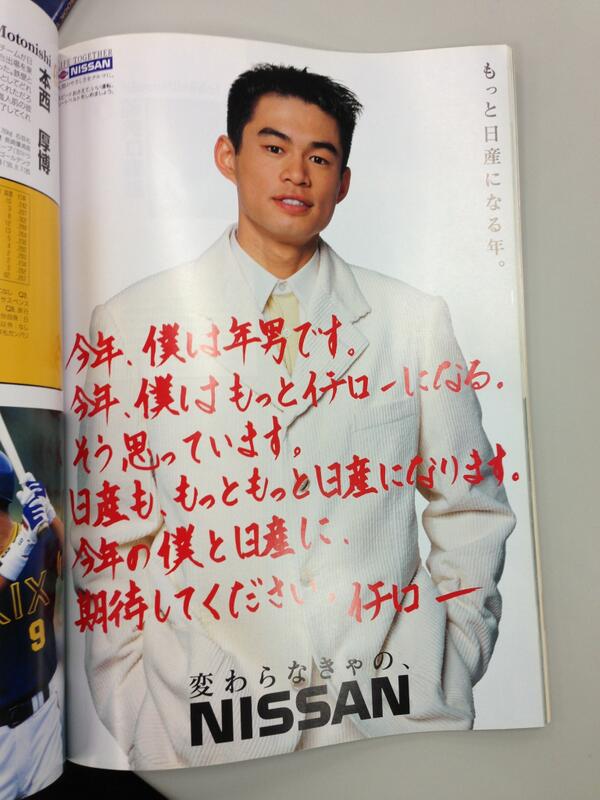 Motonishi
本西 厚博
LIFE TOGETHER
NISSAN
もっと日産になる年。
今年、僕は年男です。
今年、僕はもっとイチローになる。
そう思っています。
日産も、もっともっと日産になります。
今年の僕と日産に、
期待してください。イチロー
変わらなきゃの、
NISSAN
9